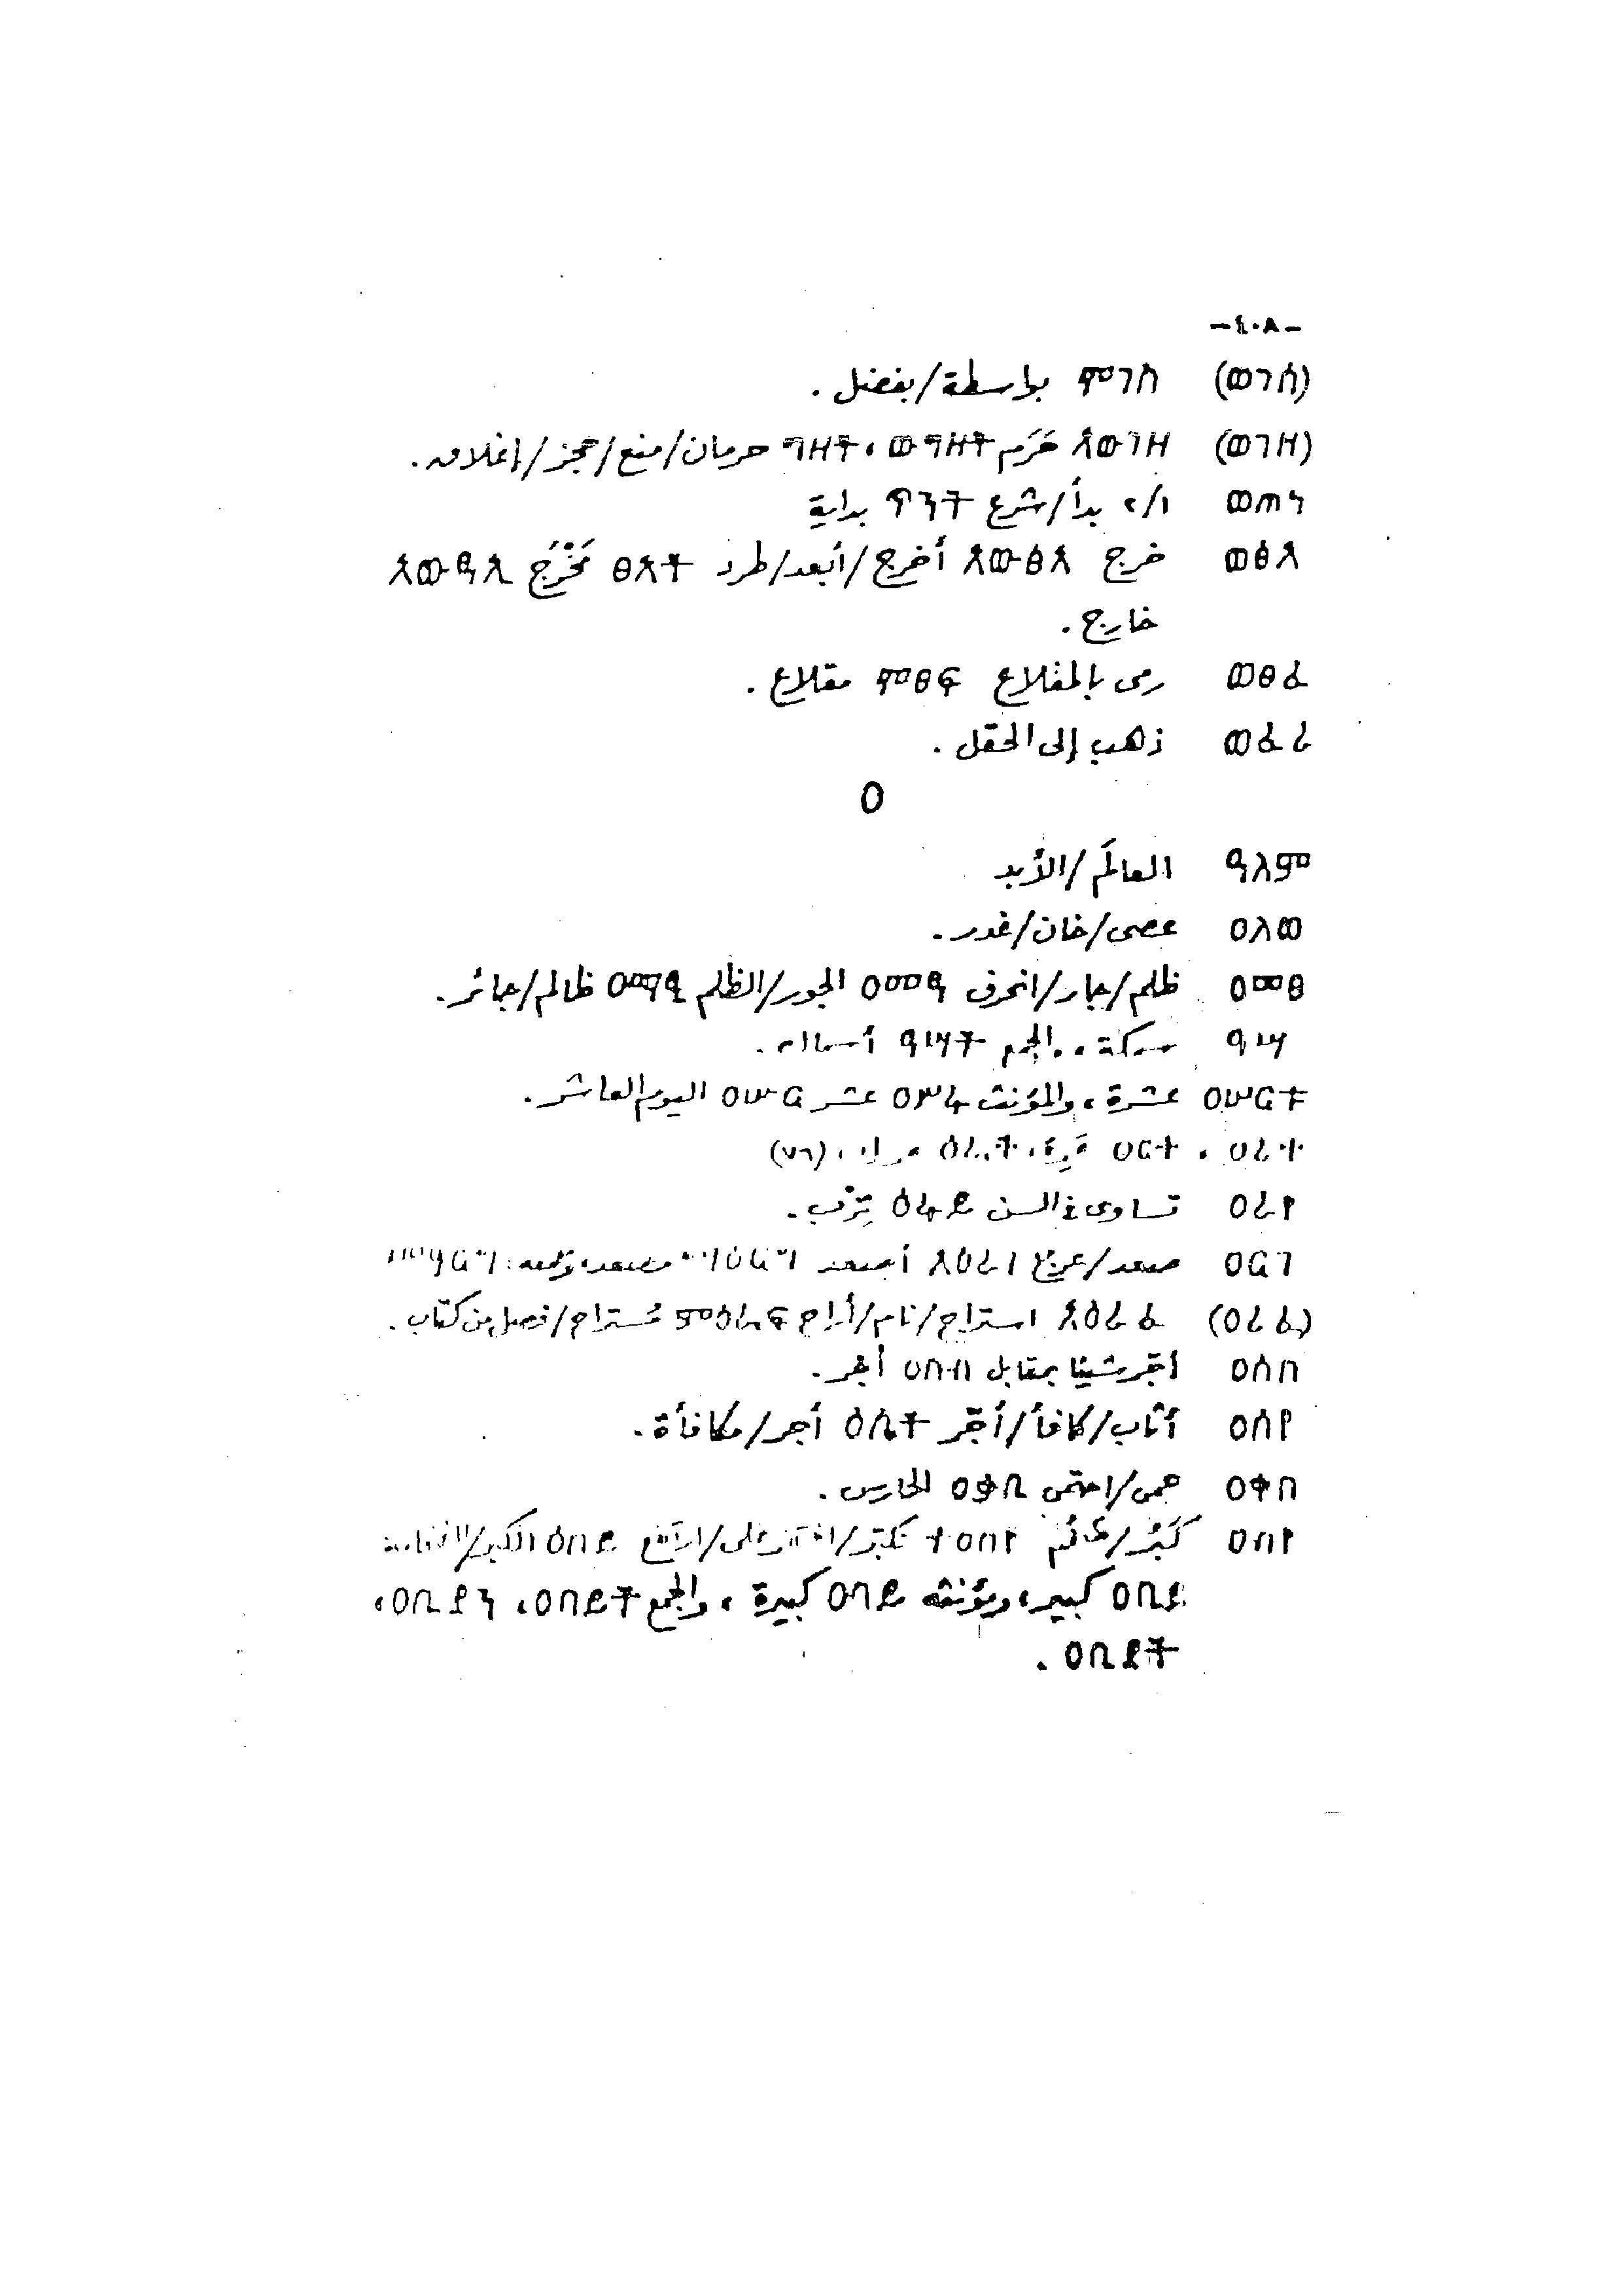 -٤٠٨-
بواسطة/بفضل .
(ወገዘ) አውገዘ حَرَم ውግዘት، ግዘት حرمان/منع/حجز/إغلاق.
ወጠነ ١/٢ بدأ/شرع ጥንት بداية
ወፅአ خرج አውፅአ أخرج/أبعد/طرد ፀአት مَخْرَج
خارج .
ወፀፈ رمى بالمقلاع ሞፀፍ مقلاع .
ወፈረ ذهب إلى الحقل .
ዐ
ዓለም العالَم/الأبد
ዐለወ عصى/خان/غدر .
ዐመፀ ظلم/جار/انحرف ዐመፃ الجور/الظلم ዐማፂ ظالم/جائر.
ዓሣ سمكة ، والجمع ዓሣት أسماك .
ዐሠርቱ عشرة ، والمؤنث ዐሠሩ عشر ዐሡር اليوم العاشر .
(٧٦)
ዐረየ تساوى في السن تِرْب .
ዐርገ صعد/عرج አዕረገ أصعد
(ዐረፈ) አዕረፈ استراح/نام/أراح ምዕራፍ مُستراح/فصل من كتاب .
ዐሰበ أجّر شيئا بمقابل ዐስብ أجر .
ዐሰየ أثاب/كافأ/أجّر ዕሴት أجر/مكافأة .
ዐቀበ حمى/احتمى ዐቃቢ الحارس .
ዐበየ كَبُر/عظُم ተዐበየ تكبّر/
ዐቢይ كبير، ومؤنثه ዐባይ كبيرة ، والجمع ዐበይት، ዐቢያን،
ዐቢያት .